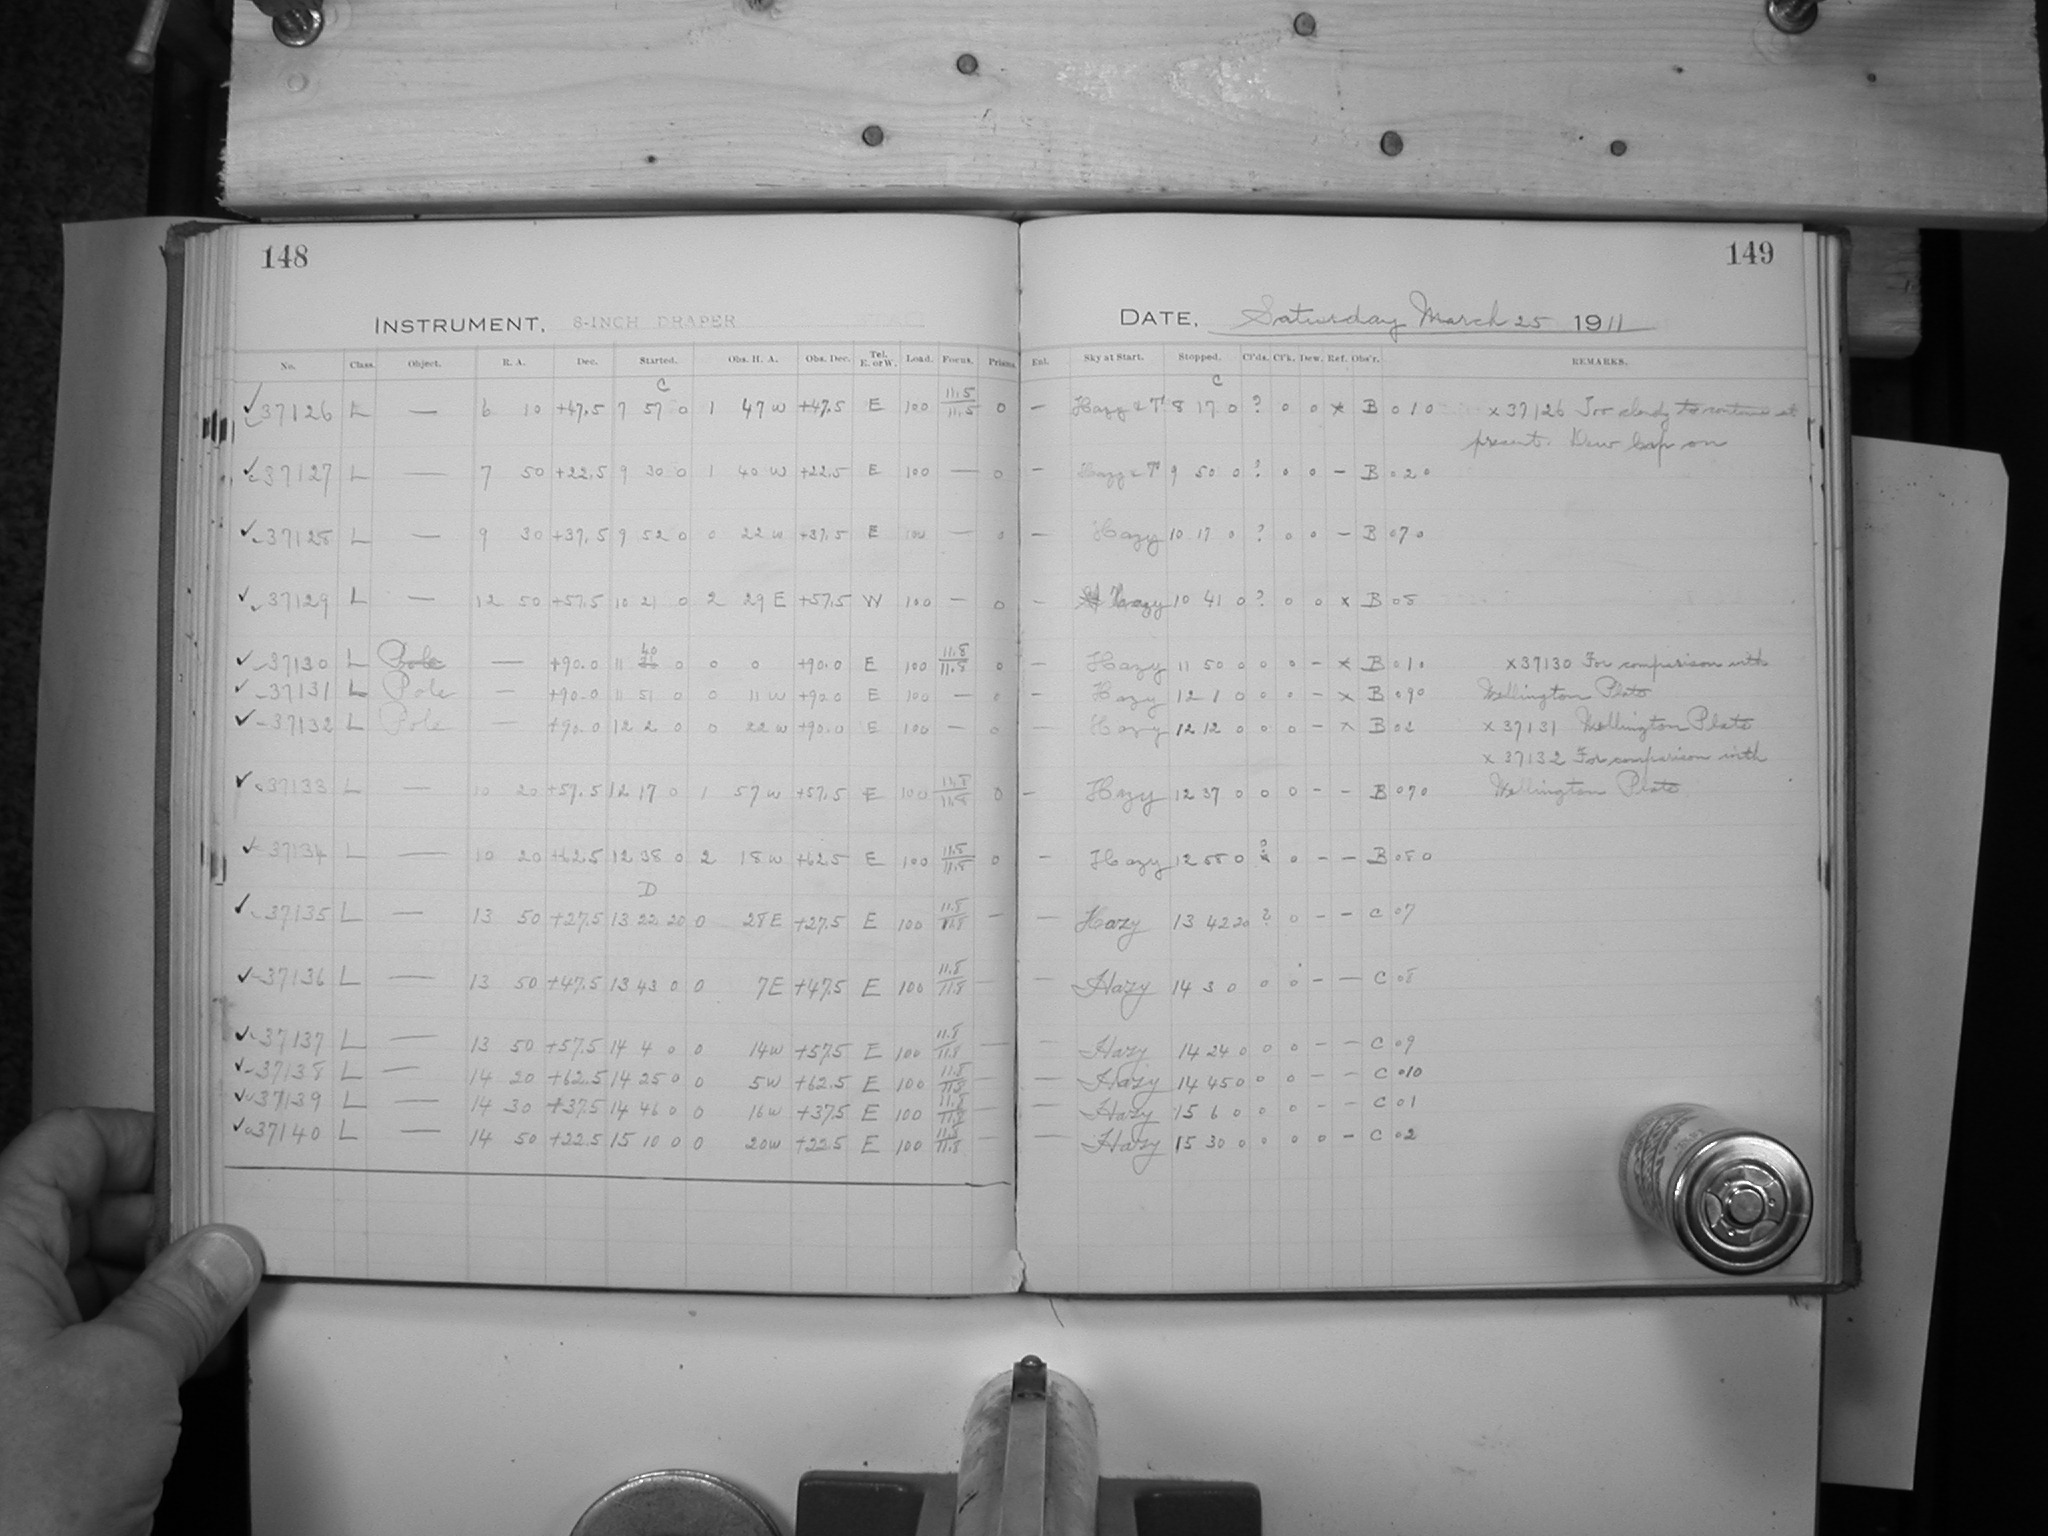 148
149
INSTRUMENT, 8-INCH DRAPER
DATE, Saturday March 25 1911
No. Class. Object. R. A. Dec. Started. Obs. H. A. Obs. Dec. Tel. E. or W. Load. Focus. Prisms. Enl. Sky at Start. Stopped. Cl'ds. Cl'k. Dew. Ref. Obs'r. REMARKS.
C C
37126 L — 6 10 +47.5 7 57 0 1 47 W +47.5 E 100 11.5/11.5 0 — Hazy 8 17 0 ? 0 0 x B 010 x 37126 Too cloudy to continue at
present. Dew Cap on
37127 L — 7 50 +22.5 9 30 0 1 40 W +22.5 E 100 — 0 — Hazy 9 50 0 ? 0 0 — B 020
37128 L — 9 30 +37.5 9 52 0 0 22 W +37.5 E 100 — 0 — Hazy 10 17 0 ? 0 0 — B 070
37129 L — 12 50 +57.5 10 21 0 2 29 E +57.5 W 100 — 0 — Hazy 10 41 0 ? 0 0 x B 08
37130 L Pole — +90.0 11 40 0 0 0 +90.0 E 100 11.8/11.8 0 — Hazy 11 50 0 0 0 — x B 010 x 37130 For comparison with
37131 L Pole — +90.0 11 51 0 0 11 W +90.0 E 100 — 0 — Hazy 12 1 0 0 0 — x B 090 Wellington Plate
37132 L Pole — +90.0 12 2 0 0 22 W +90.0 E 100 — 0 — Hazy 12 12 0 0 0 — x B 02 x 37131 Wellington Plate
x 37132 For comparison with
37133 L — 10 20 +57.5 12 17 0 1 57 W +57.5 E 100 11.8/11.8 0 — Hazy 12 37 0 0 0 — — B 070 Wellington Plate
37134 L — 10 20 +62.5 12 38 0 2 18 W +62.5 E 100 11.8/11.8 0 — Hazy 12 58 0 ? 0 — — B 080
D
37135 L — 13 50 +27.5 13 22 20 0 28 E +27.5 E 100 11.8/11.8 — — Hazy 13 42 20 ? 0 — — C 07
37136 L — 13 50 +47.5 13 43 0 0 7 E +47.5 E 100 11.8/11.8 — — Hazy 14 3 0 0 0 — — C 08
37137 L — 13 50 +57.5 14 4 0 0 14 W +57.5 E 100 11.8/11.8 — — Hazy 14 24 0 0 0 — — C 09
37138 L — 14 20 +62.5 14 25 0 0 5 W +62.5 E 100 11.8/11.8 — — Hazy 14 45 0 0 0 — — C 010
37139 L — 14 30 +37.5 14 46 0 0 16 W +37.5 E 100 11.8/11.8 — — Hazy 15 6 0 0 0 — — C 01
37140 L — 14 50 +22.5 15 10 0 0 20 W +22.5 E 100 11.8/11.8 — — Hazy 15 30 0 0 0 0 — C 02